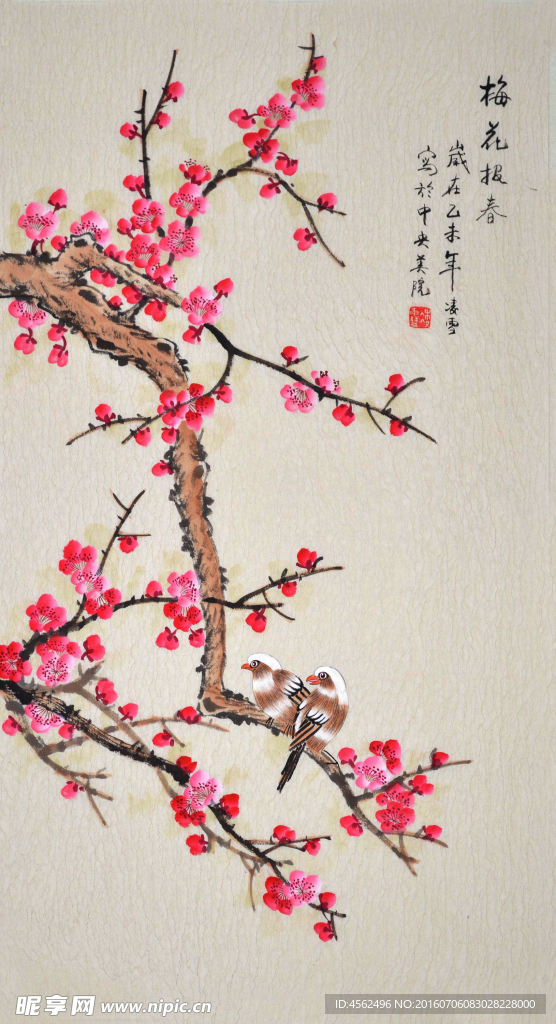 梅花报春
岁在乙未年凌雪
写于中央美院
昵享网 www.nipic.cn
ID:4562496 NO:20160706083028228000